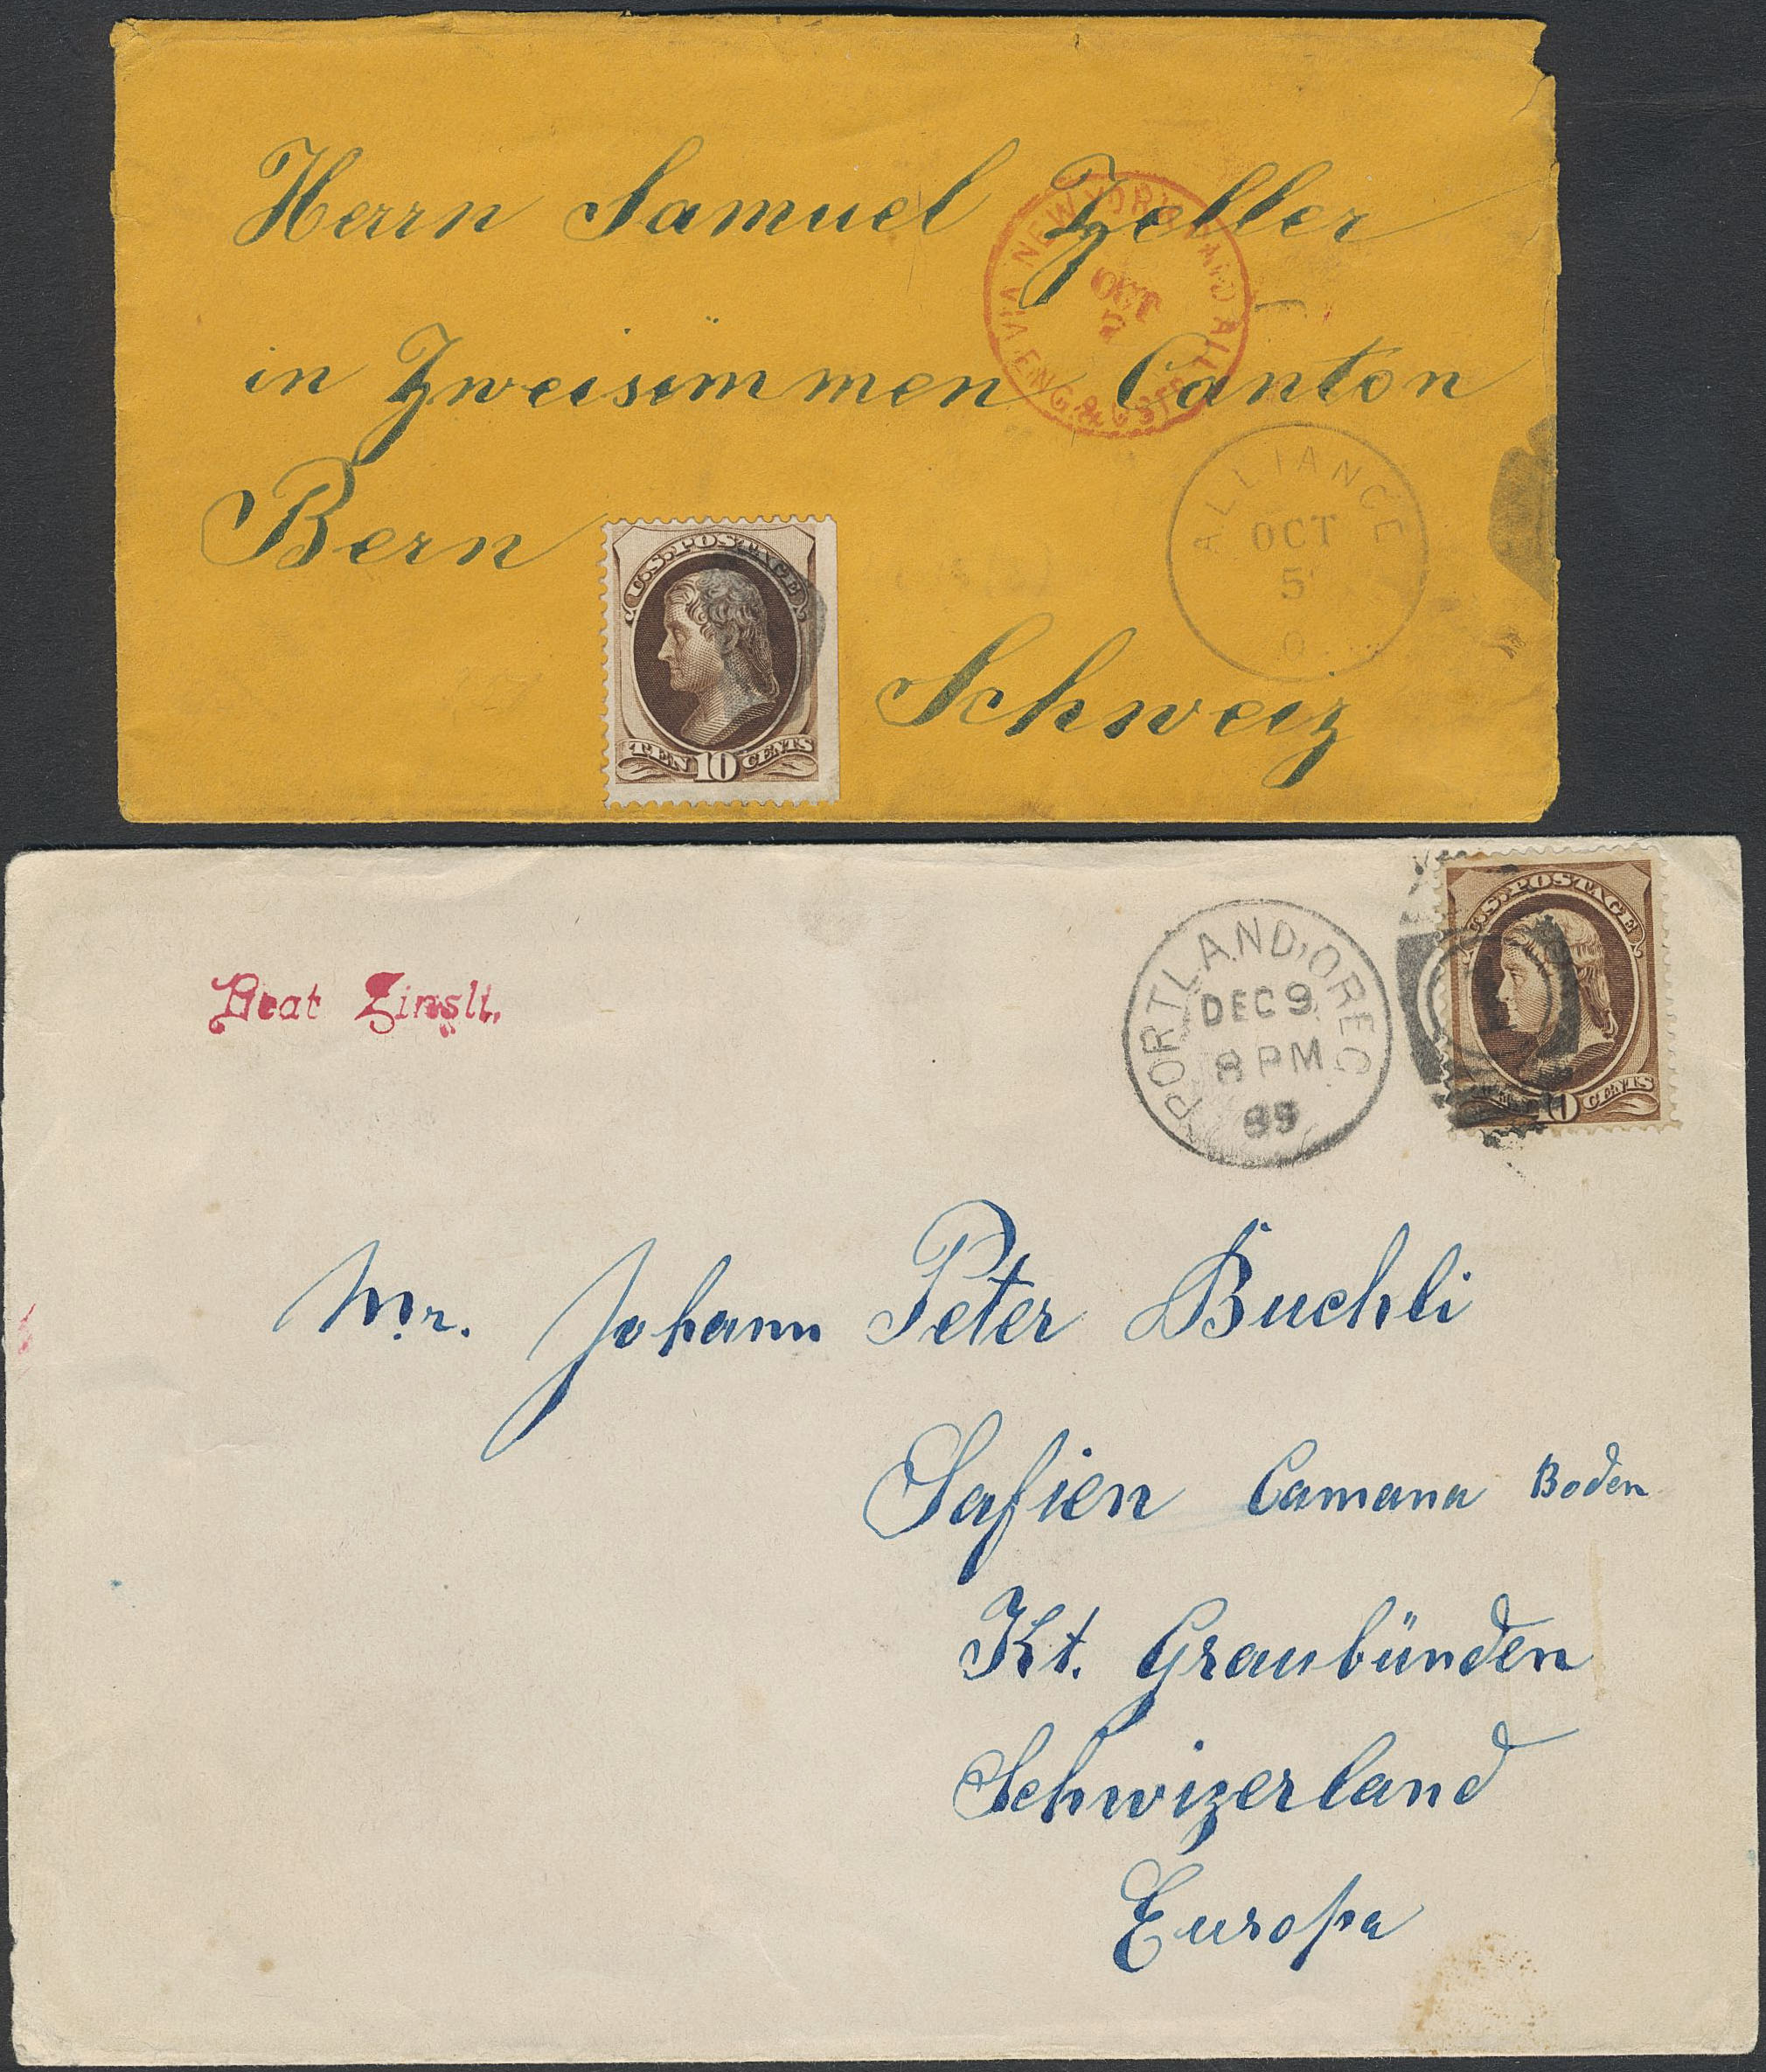 Herrn Samuel Zeller
in Zweisimmen Canton
Bern
Schweiz
NEW YORK PAID ALL
VIA ENG. & OST.
OCT
ALLIANCE
OCT
5
O
U.S. POSTAGE
TEN 10 CENTS
Beat Zinsli.
PORTLAND, OREG
DEC 9
8 PM
89
U.S. POSTAGE
10 CENTS
Mr. Johann Peter Buchli
Safien Camana Boden
Kt. Graubünden
Schwizerland
Europa